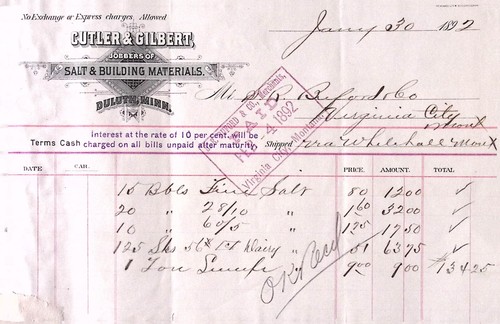 No Exchange or Express charges, Allowed
Jany 30 1892
CUTLER & GILBERT,
JOBBERS OF
SALT & BUILDING MATERIALS.
DULUTH, MINN.
M S. R. Buford & Co
Virginia City
Mont
Interest at the rate of 10 per cent. will be
Terms Cash charged on all bills unpaid after maturity. Shipped via Whitehall Mont
& CO., Merchants,
PAID
FEB 4 1892
Virginia City, Montana
DATE CAR. PRICE. AMOUNT. TOTAL
15 Bbls Fine Salt 80 1200 ✓
20 " 28/10 " 1 60 3200 ✓
10 " 60/5 " 1 75 1750 ✓
125 Sks 56# Dairy " 51 6375 ✓
1 Ton 9 00 9 00 $134 25
OK Recd